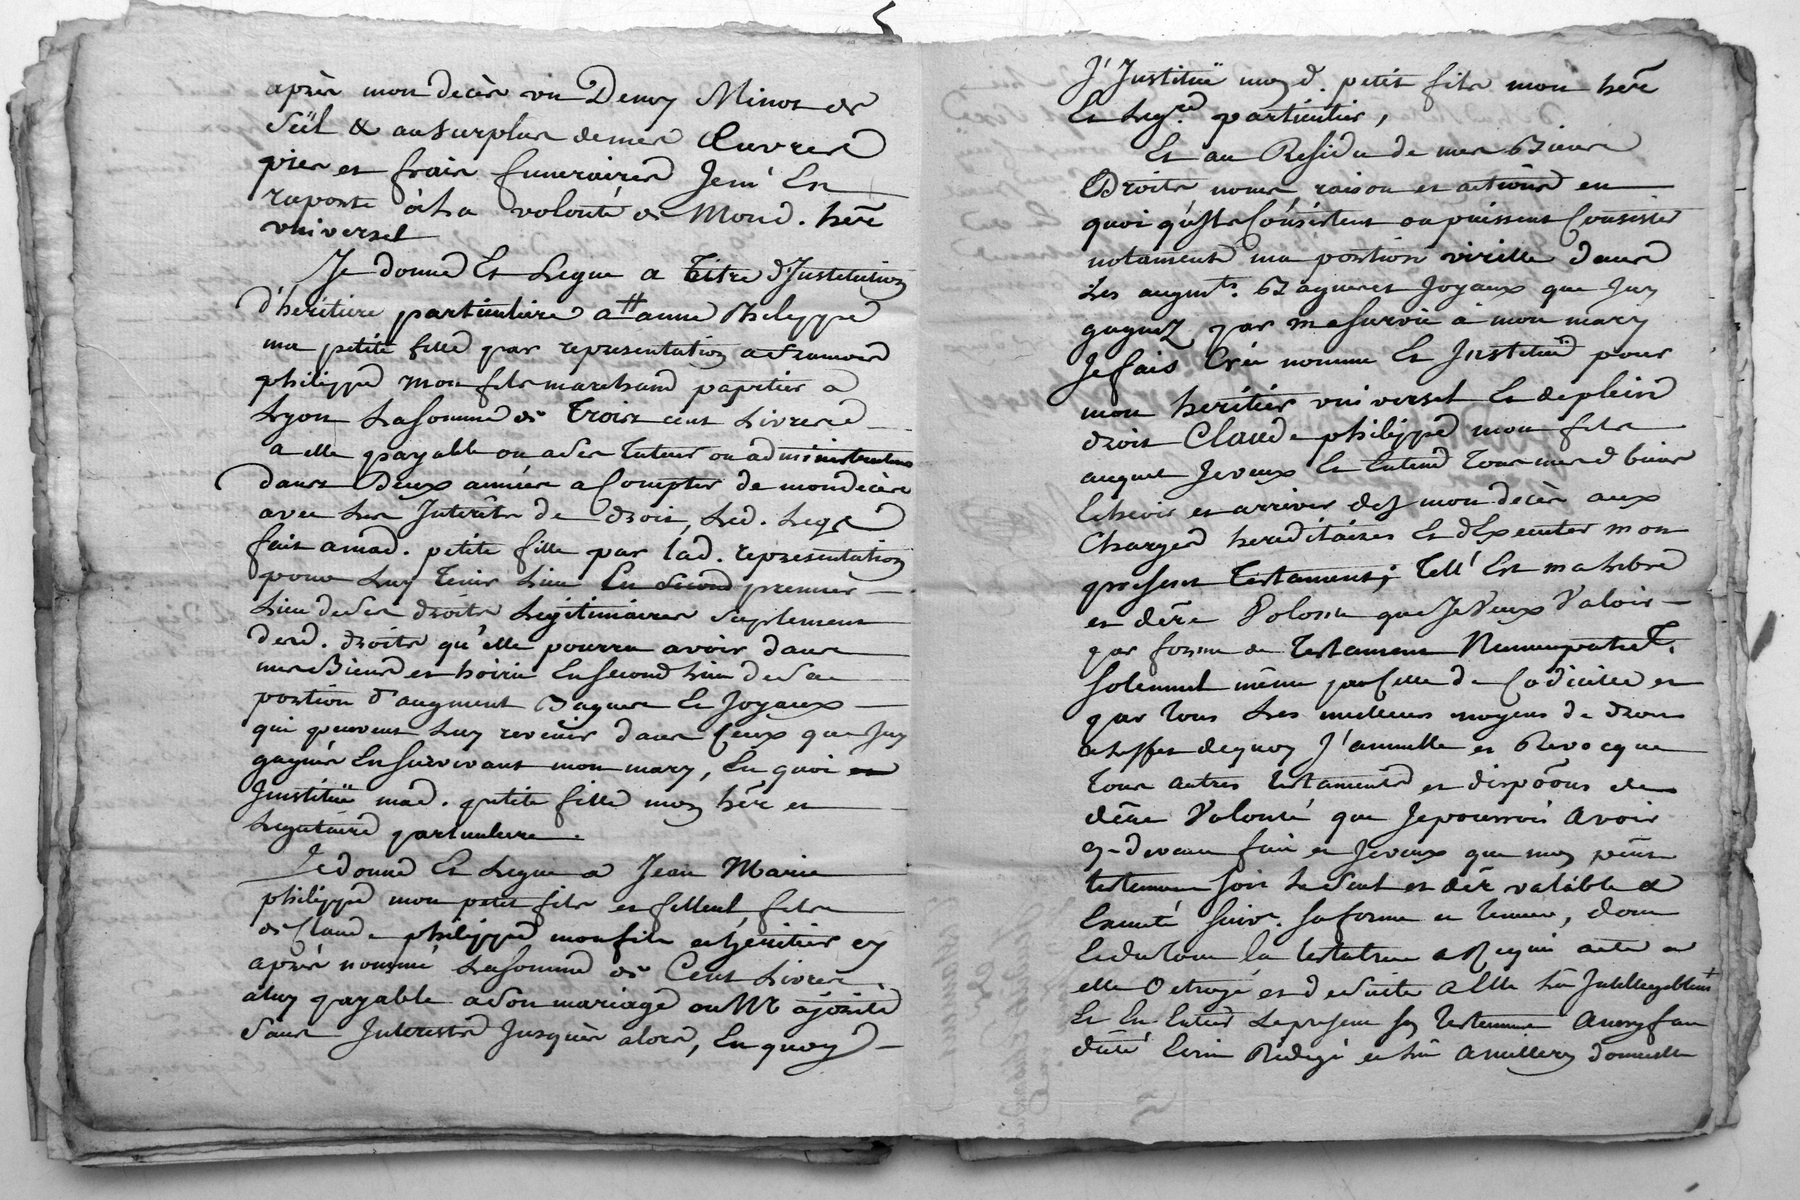 après mon decès un Demy Minot de
Seil & au surplus de mes Œuvres
pies et frais funeraires Je m'En
raporte à La volonté de Mond. here
universel
Je donne Et Legue a Titre d'Institution
d'heritiere particuliere a anne Philippe
ma petite fille par representation
philippe mon fils marchand papetier a
Lyon La somme de Trois cent Livres
a elle payable ou a Ses Tuteur ou administrateurs
dans deux années a Compter de mon decès
avec Les Interêts de droit, Led. Legs
fait a mad. petite fille par lad. representation
pour Luy Tenir Lieu En premier
Lieu de Ses droits Legitimaires Suplement
desd. droits qu'elle pourra avoir dans
mes Biens et hoirie En second Lieu de Sa
portion d'augment Bagues Et Joyaux
qui peuvent Luy revenir dans Ceux que Jay
gagnés En Survivant mon mary, En quoi
Jinstituë mad. petite fille mon here et
Legataire particuliere.
Je donne Et Legue a Jean Marie
philippe mon petit fils et filleul, fils
de Claude philippe mon fils et heritier cy
après nommé La somme de Cent Livres
a luy payable a Son mariage ou Mté
Sans Interests Jusqu'es alors, En quoy
J'Instituë mond. petit fils mon here
Et Legre particulier,
Et au Residu de mes Biens
Droits noms raison et actions en
quoi qu'ils Consistent ou puissent Consister
notament ma portion virille dans
Les augmts. Bagues et Joyaux que Jay
gagnez par ma survie a mon mary
Je fais Crée nomme Et Institue pour
mon heritier universel Et de plein
droit Claude philippe mon fils
auquel Je veux Et Entend Tous mesd biens
Echeoir et arriver des mon decès aux
Charges hereditaires Et d'Executer mon
present Testament; Tell' Est ma Libre
et dere Volonté que Je Veux Valoir
par forme de Testament Nuncupatif,
Solennel même par Celle de Codicille et
par Tous Les meilleurs moyens de droit
a L'effet de quoy J'annulle et Revocque
Tous autres Testaments et dispõõns de
dere Volonté que Je pourrois avoir
cy-devant fait et Je veux que mon pñt
testament soit Le Seul et der valable &
Executé Suivt. sa forme et teneur, dont
Et du tout la testatrice a Requis acte a
elle Octroyé et de Suite a Elle Lû Jntelligiblemt
Et En Entier Le present Testament
Ecrit Rédigé et Lû a Millery domicille